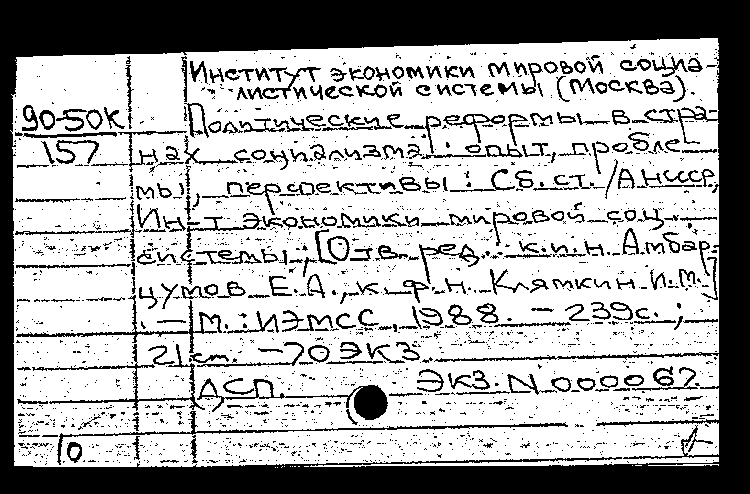 Институт экономики мировой социа-
листической системы (Москва).
90-50К
Политические реформы в стра-
157
нах социализма: опыт, пробле-
мы, перспективы: Сб. ст. /АНСССР,
Ин-т экономики мировой соц.
системы; [Отв. ред.: к.и.н. Амбар-
цумов Е.А., к. ф. н. Клямкин И.М.]
. – М.: ИЭМСС, 1988. – 239с.;
21 cm. – 70 ЭКЗ
ДСП. ЭКЗ. N 000067.
10